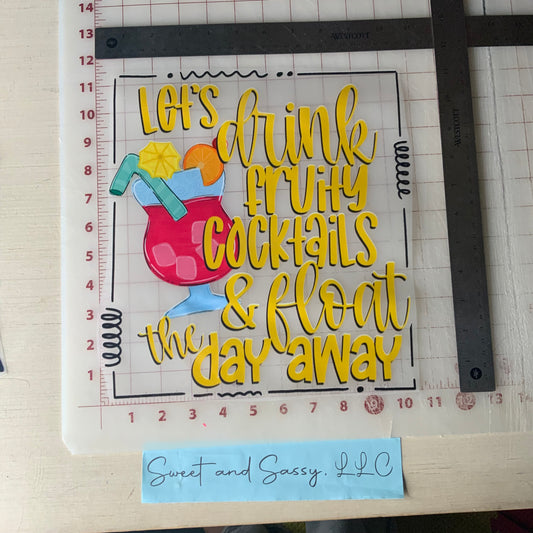 14
13
12
11
10
9
8
7
6
5
4
3
2
1
WESTCOTT
WESTCOTT
Let's
drink
fruity
cocktails
& float
the day away
1 2 3 4 5 6 7 8 9 10 11 12 13
Sweet and Sassy, LLC